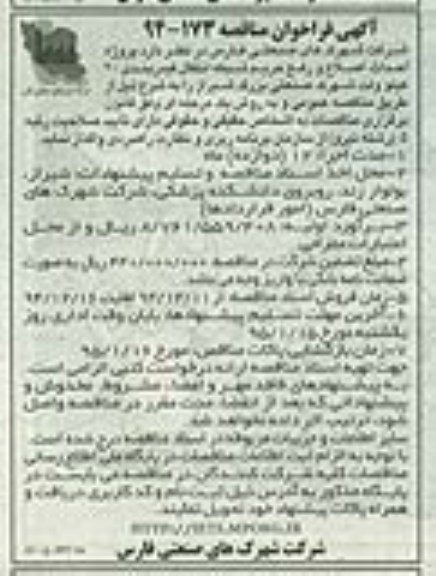 آگهی فراخوان مناقصه ۱۷۳-۹۴
شرکت شهرک های صنعتی فارس در نظر دارد پروژه
احداث، اصلاح و رفع حریم شبکه انتقال فیدر بندی ۲۰
کیلو ولت شهرک صنعتی بزرگ شیراز را به شرح ذیل از
طریق مناقصه عمومی و به روش یک مرحله ای وفق قانون
برگزاری مناقصات به اشخاص حقیقی و حقوقی دارای تایید صلاحیت رتبه
۵ رشته نیرو از سازمان برنامه ریزی و نظارت راهبردی واگذار نماید.
۱-مدت اجرا: ۱۲ (دوازده) ماه
۲-محل اخذ اسناد مناقصه و تسلیم پیشنهادات: شیراز،
بولوار زند، روبروی دانشکده پزشکی، شرکت شهرک های
صنعتی فارس (امور قراردادها)
۳-برآورد اولیه: ۸/۷۶۱/۵۵۹/۳۰۸ ریال و از محل
اعتبارات عمرانی
۴-مبلغ تضمین شرکت در مناقصه ۴۴۰/۰۰۰/۰۰۰ ریال به صورت
ضمانت نامه بانکی یا واریز وجه می باشد.
۵-زمان فروش اسناد مناقصه: از ۹۴/۱۲/۱۱ لغایت ۹۴/۱۲/۱۶
۶-آخرین مهلت تسلیم پیشنهادها: پایان وقت اداری روز
یکشنبه مورخ ۹۵/۱/۱۵
۷-زمان بازگشایی پاکات مناقصه: مورخ ۹۵/۱/۱۶
جهت تهیه اسناد مناقصه ارائه درخواست کتبی الزامی است.
به پیشنهادهای فاقد مهر و امضا، مشروط، مخدوش و
پیشنهاداتی که بعد از انقضا مدت مقرر در مناقصه واصل
شود، ترتیب اثر داده نخواهد شد.
سایر اطلاعات و جزییات مربوطه در اسناد مناقصه درج شده است.
با توجه به الزام ثبت اطلاعات مناقصات در پایگاه ملی اطلاع رسانی
مناقصات کلیه شرکت کنندگان در مناقصه می بایست در
پایگاه مذکور به آدرس ذیل ثبت نام و کد کاربری دریافت و
همراه پاکات پیشنهاد خود تحویل نمایند.
HTTP://IETS.MPORG.IR
شرکت شهرک های صنعتی فارس